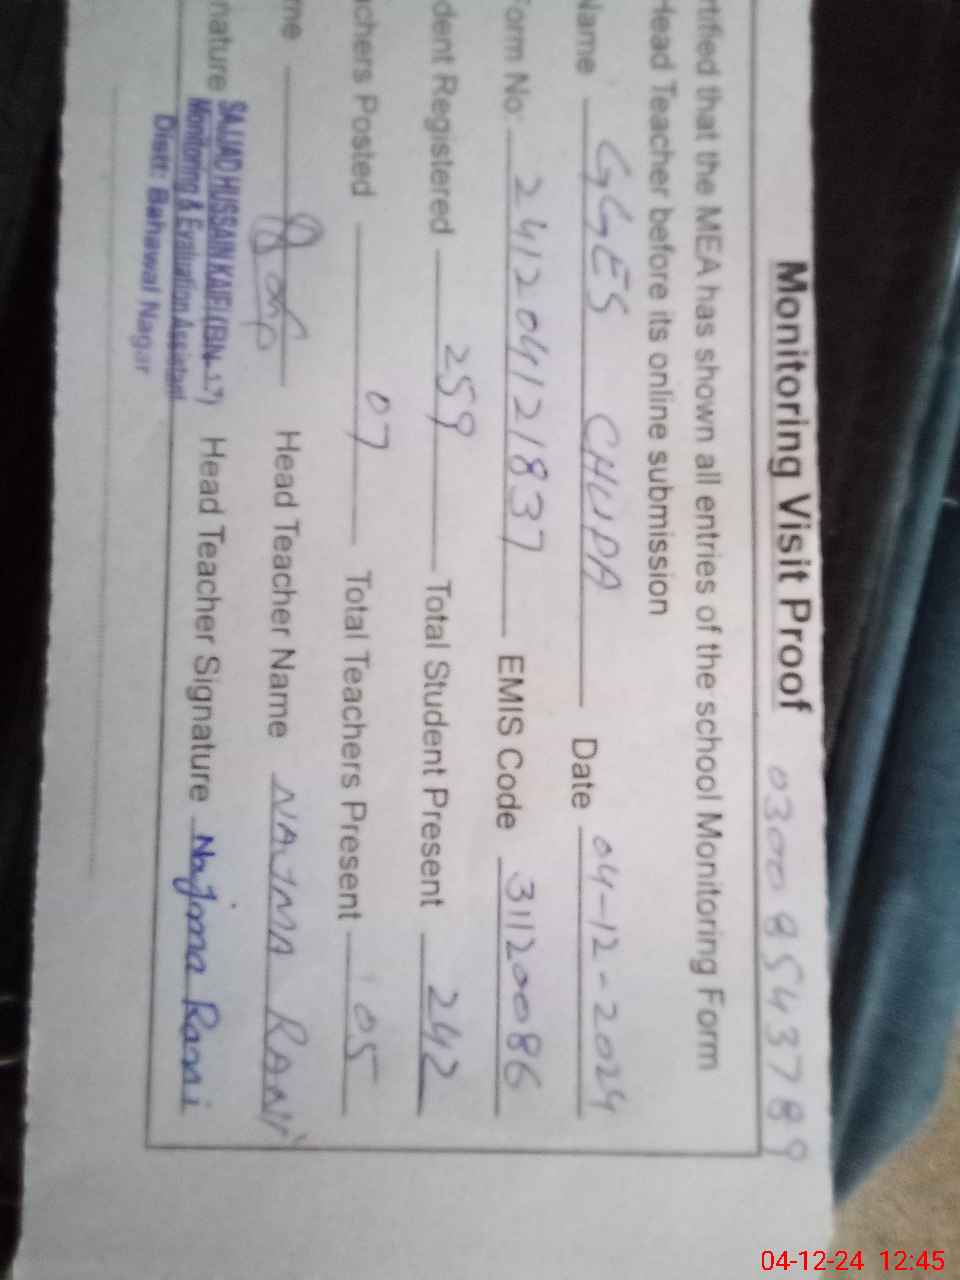 Monitoring Visit Proof 0300 8543789
rtified that the MEA has shown all entries of the school Monitoring Form
Head Teacher before its online submission
Name GGES CHUPA Date 04-12-2024
Form No. 241204121837 EMIS Code 31120086
dent Registered 259 Total Student Present 242
achers Posted 07 Total Teachers Present 05
me Head Teacher Name NAJMA RANI
nature SAJJAD HUSSAIN KAIFI (BN-17) Head Teacher Signature Najma Rani
Monitoring & Evaluation Assistant
Distt: Bahawal Nagar
04-12-24 12:45